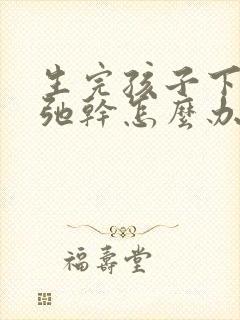 生完孩子下
弛幹怎麼办
福壽堂